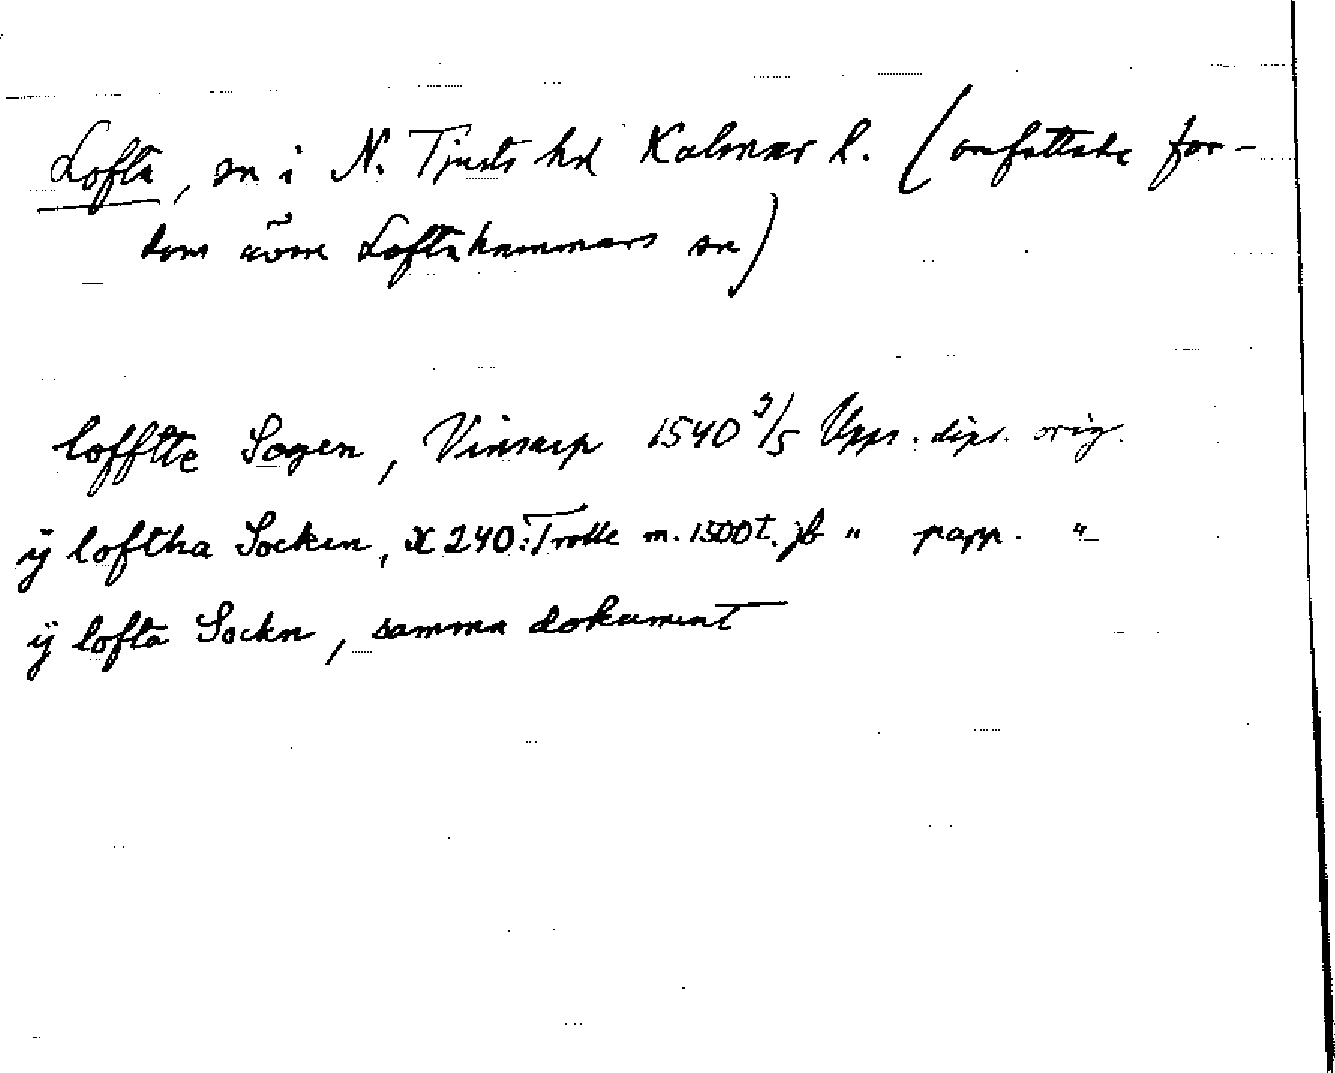 Lofta, sn i N. Tjusts hd Kalmar l. (omfattade for-
dom även Loftahammars sn)
lofftte Sogen, Vinsarp 1540 9/5 Upps. dipl. orig.
ÿ loftha Socken, X 240: Trolle m. 1500t. jb " papp. "
ÿ lofta Sockn, samma dokument